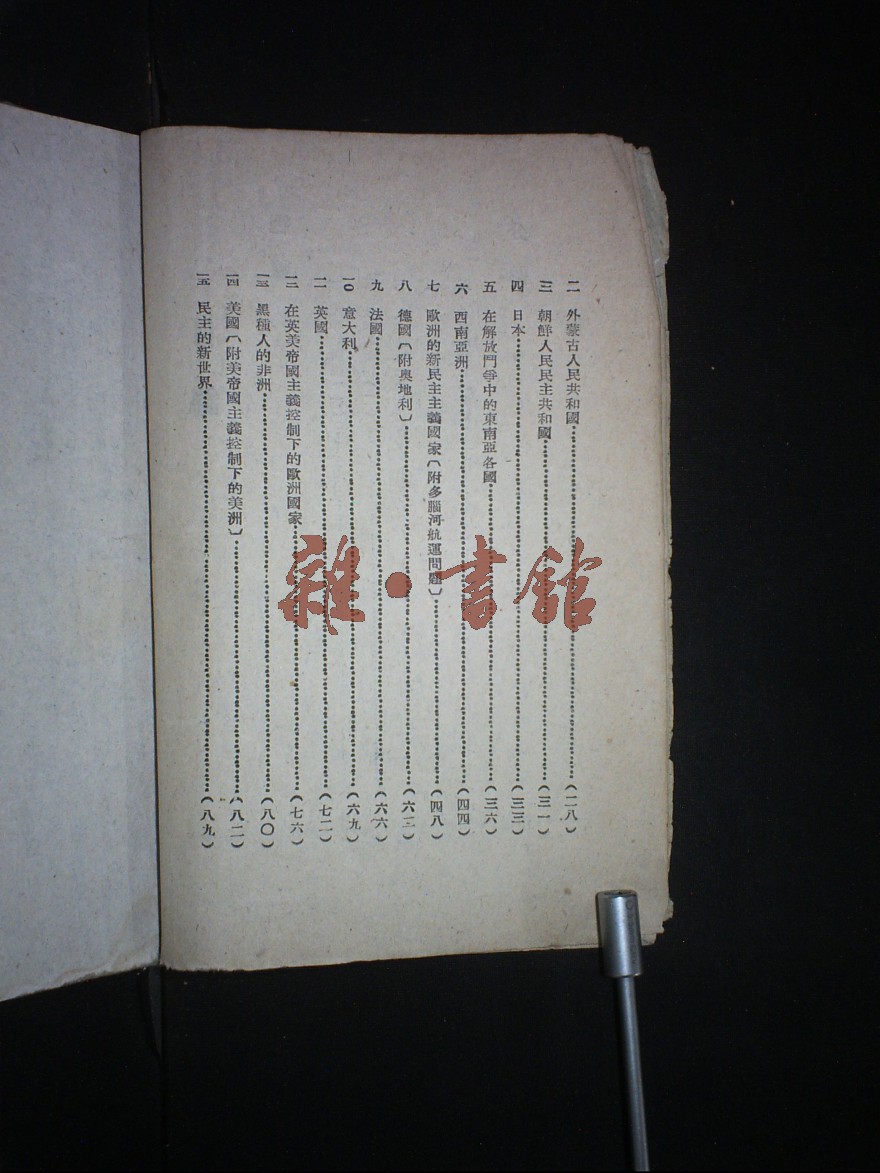 二 外蒙古人民共和國……(二八)
三 朝鮮人民民主共和國……(三一)
四 日本……(三三)
五 在解放鬥爭中的東南亞各國……(三六)
六 西南亞洲……(四四)
七 歐洲的新民主主義國家〔附多腦河航運問題〕……(四八)
八 德國〔附奧地利〕……(六三)
九 法國……(六六)
一〇 意大利……(六九)
一一 英國……(七二)
一二 在英美帝國主義控制下的歐洲國家……(七六)
一三 黑種人的非洲……(八〇)
一四 美國〔附美帝國主義控制下的美洲〕……(八二)
一五 民主的新世界……(八九)
雜·書館